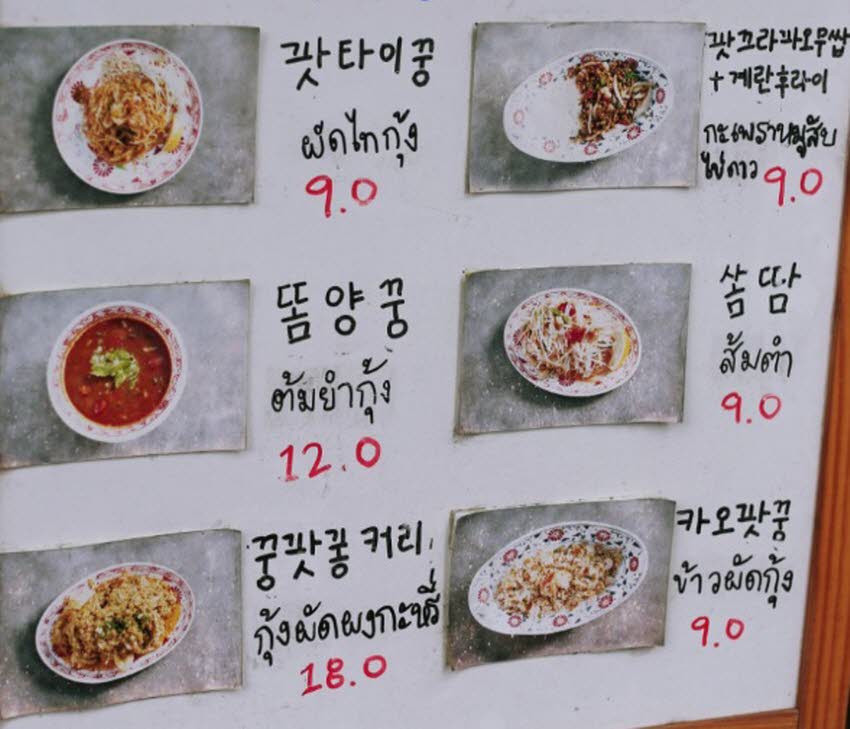 팟타이꿍
ผัดไทกุ้ง
9.0
팟끄라파오무쌉
+ 계란후라이
กะเพราหมูสับ
ไข่ดาว 9.0
똠양꿍
ต้มยำกุ้ง
12.0
쏨땀
ส้มตำ
9.0
꿍팟퐁커리
กุ้งผัดผงกะหรี่
18.0
카오팟꿍
ข้าวผัดกุ้ง
9.0